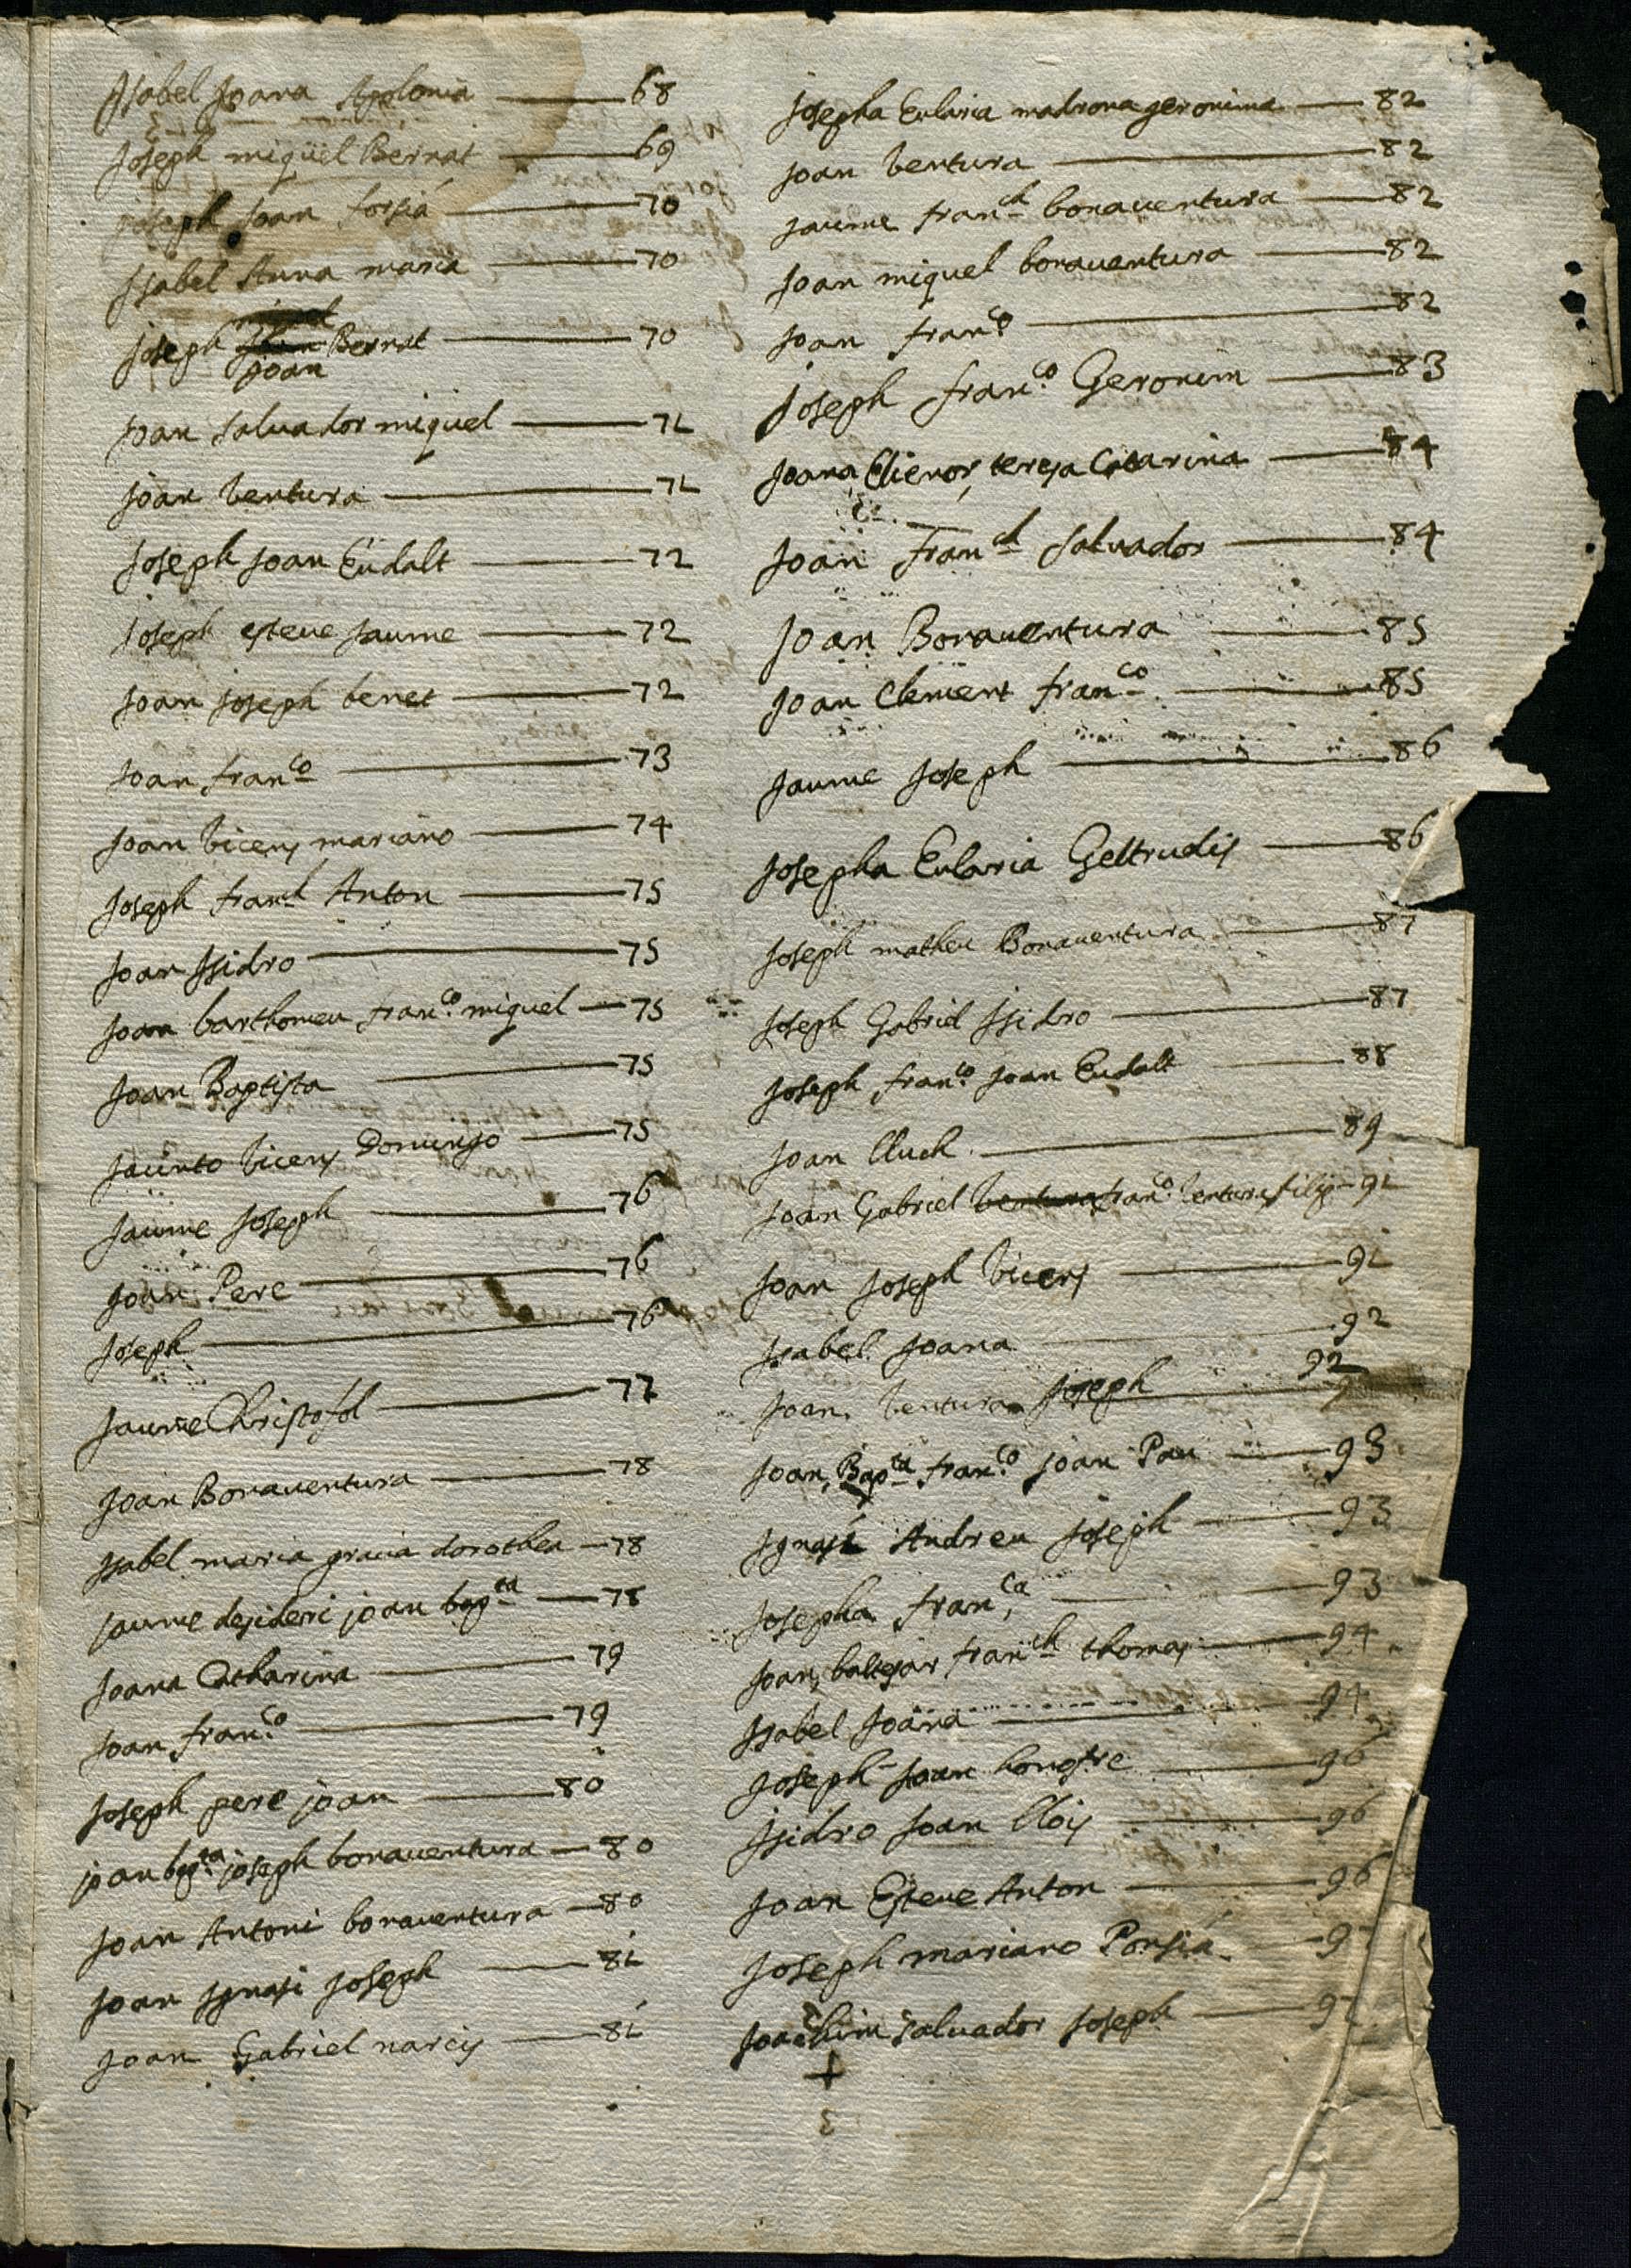 Isabel Joana Apolonia — 68
Joseph miquel Bernat — 69
joseph Joan sorsiá — 70
Isabel Anna maria — 70
Joseph Bernat — 70
joan
joan saluador miquel — 71
joan ventura — 71
Joseph Joan Eudalt — 72
Joseph esteue Jaume — 72
Joan joseph benet — 72
Joan franco — 73
Joan vicens mariano — 74
Joseph franch Anton — 75
Joan Isidro — 75
Joan barthomeu franco miquel — 75
Joan Baptista — 75
Jacinto vicens Domingo — 75
Jaume Joseph — 76
Joan Pere — 76
Joseph — 76
Jaume Christofol — 77
Joan Bonauentura — 78
Isabel maria gracia dorothea — 78
Jaume desideri joan bapta — 78
Joana Catharina — 79
Joan franco — 79
Joseph pere joan — 80
joan bapta joseph bonauentura — 80
Joan Antoni bonauentura — 80
Joan Ignasi Joseph — 81
Joan Gabriel narcis — 81
Josepha Eularia madrona geronima — 82
Joan ventura — 82
Jaume franch bonauentura — 82
Joan miquel bonauentura — 82
Joan franco — 82
Joseph franco Geronim — 83
Joana Elienor, teresa Catarina — 84
Joan franch saluador — 84
Joan Bonauentura — 85
Joan Clement franco — 85
Jaume Joseph — 86
Josepha Eularia Geltrudis — 86
Joseph matheu Bonauentura — 87
Joseph Gabriel Isidro — 87
Joseph franco joan Eudalt — 88
Joan lluch — 89
Joan Gabriel ventura franco ventura filip — 91
Joan Joseph vicens — 91
Isabel Joana — 92
Joan ventura Joseph — 92
Joan, Bapta franco joan Pau — 93
Ignasi Andreu Joseph — 93
Josepha franca — 93
Joan, baltesar franch thomas — 94
Isabel Joana — 94
Joseph Joan honofre — 96
Isidro Joan llois — 96
Joan Esteue Anton — 96
Joseph mariano Porsiá — 97
Joachim saluador Joseph — 97